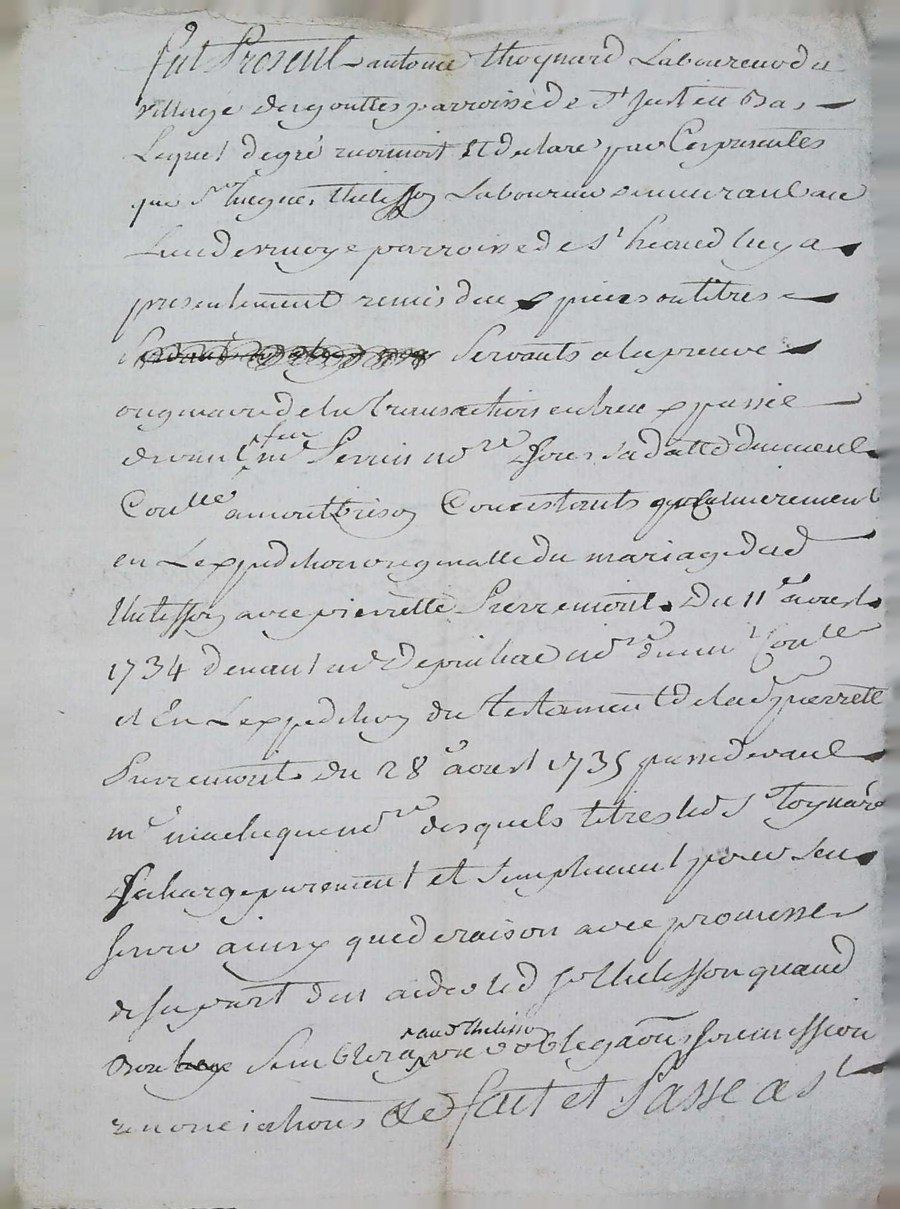 fut Present antoine thoynard Laboureur du
village des gouttes parroisse de St Just en bas
Lequel de gré reconnoit Et declare par Ces presentes
que Sr hugues thelisson Laboureur demeurant au
Lieu de parroisse de St heand luy a
presentement remis deux pieces ou titres
Servants a la preuve
originaire de la transaction entreux passée
devant feu me Perrin nore Sous sa datte duement
Coullé a montbrison Concistants premierement
en Lexpedition originalle du mariage dud
thelisson avec pierrette Pierremont. Du 11e aoust
1734 devant me Depinhac nore duemt Coullé
et En Lexpedition du testament de lad pierrette
Pierremont du 28e aoust 1735 passé devant
me nore desquels titres led Sr Toynard
decharge purement et simplement pour sen
servir ainsy que de raison avec promesse
de sa part den aider led Sr thelisson quand
aud thelisson
bon semblera par obligaons soumission
renonciations &c fait et Passé a St